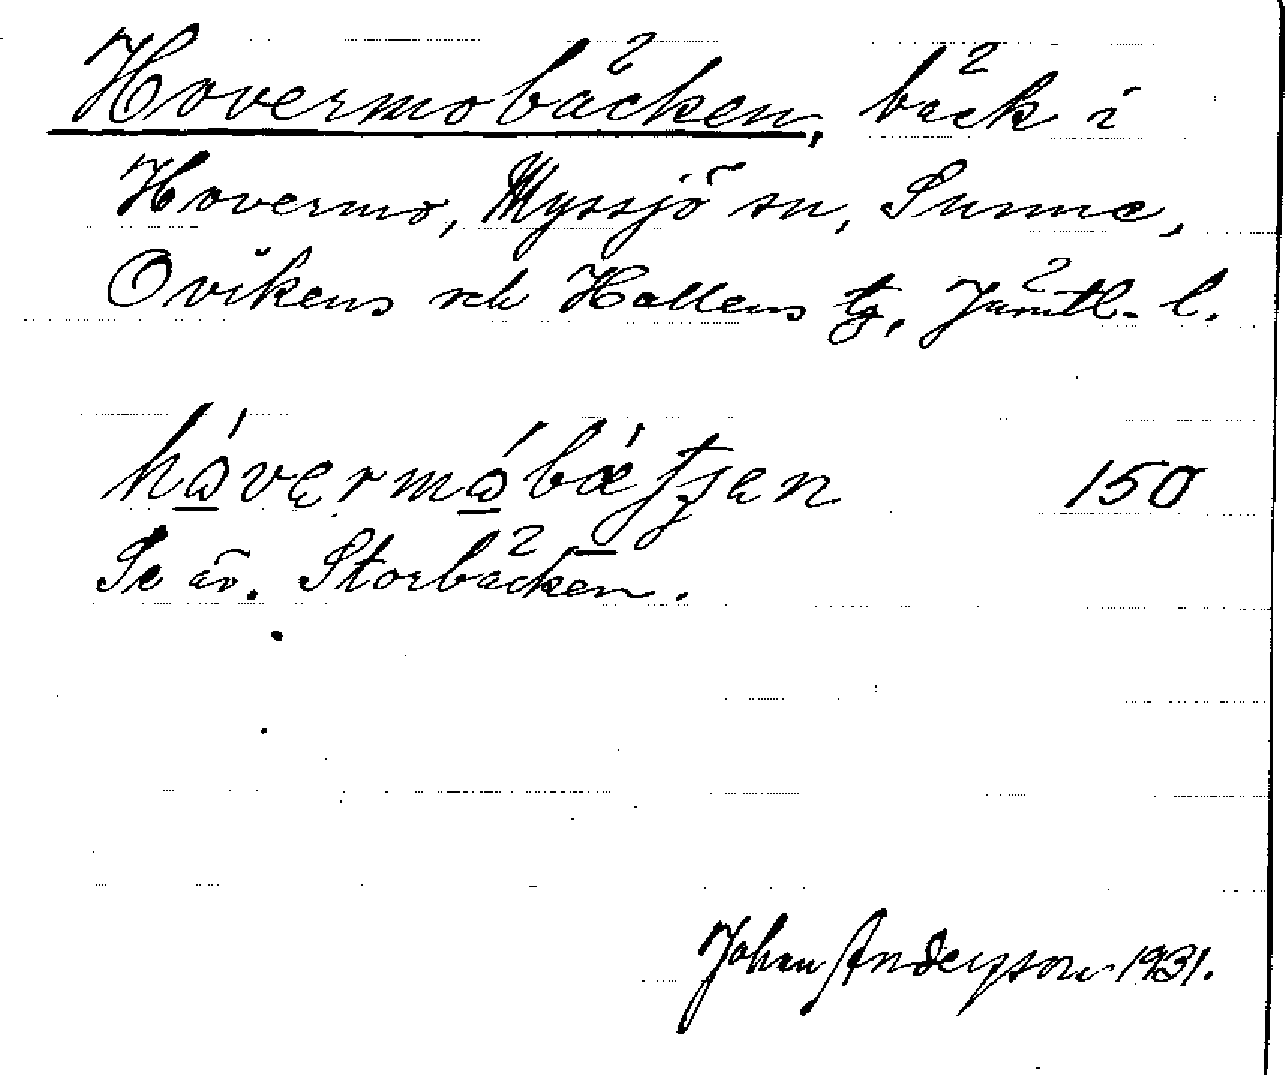 Hovermobäcken, bäck i
Hovermo, Myssjö sn, Sunne,
Ovikens och Hallens tg, Jämtl. l.
150
Se äv. Storbäcken.
Johan Anderson 1931.